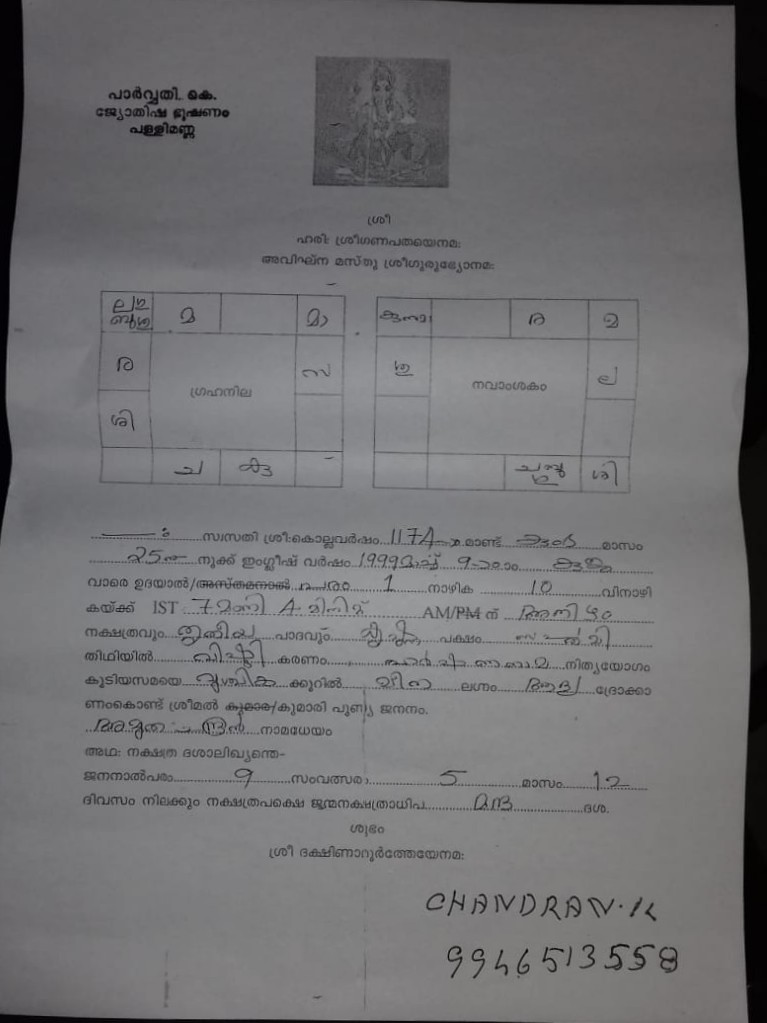 പാർവ്വതി. കെ.
ജ്യോതിഷ ഭൂഷണം
പള്ളിമണ്ണ
ശ്രീ
ഹരി: ശ്രീഗണപതയെനമ:
അവിഘ്ന മസ്തു ശ്രീഗുരുഭ്യോനമ:
ല ഗു മ മാ കു ര മ
ബു ശു
ര സ ഗു ല
ഗ്രഹനില നവാംശകം
ശി
ച കു ശി
സ്വസതി ശ്രീ:കൊല്ലവർഷം 1174 മാണ്ട് കുംഭം മാസം
25 നുക്ക് ഇംഗ്ലീഷ് വർഷം 1999 മാർച്ച് 9-ാം
വാരെ ഉദയാൽ/അസ്തമനാൽ പരം 1 നാഴിക 10 വിനാഴി
കയ്ക്ക് IST 7 മണി 4 മിനിട്ട് AM/PM ന് അനിഴം
നക്ഷത്രവും തൃതീയ പാദവും കൃഷ്ണ പക്ഷം സപ്തമി
തിഥിയിൽ വിഷ്ടി കരണം നിത്യയോഗം
കൂടിയസമയെ വൃശ്ചിക ക്കൂറിൽ മീന ലഗ്നം ആദ്യ ദ്രോക്കാ
ണംകൊണ്ട് ശ്രീമൽ കുമാര/കുമാരി പുണ്യ ജനനം.
നാമധേയം
അഥ: നക്ഷത്ര ദശാലിഖ്യന്തെ-
ജനനാൽപരം 9 സംവത്സരം 5 മാസം 12
ദിവസം നിലക്കും നക്ഷത്രപക്ഷെ ജന്മനക്ഷത്രാധിപ മന്ദ ദശ.
ശുഭം
ശ്രീ ദക്ഷിണാമൂർത്തേയേനമ:
CHANDRAN.K
9946513558